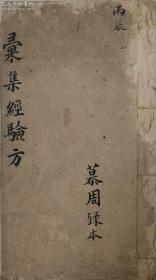 丙辰
彙集經驗方
慕周録本